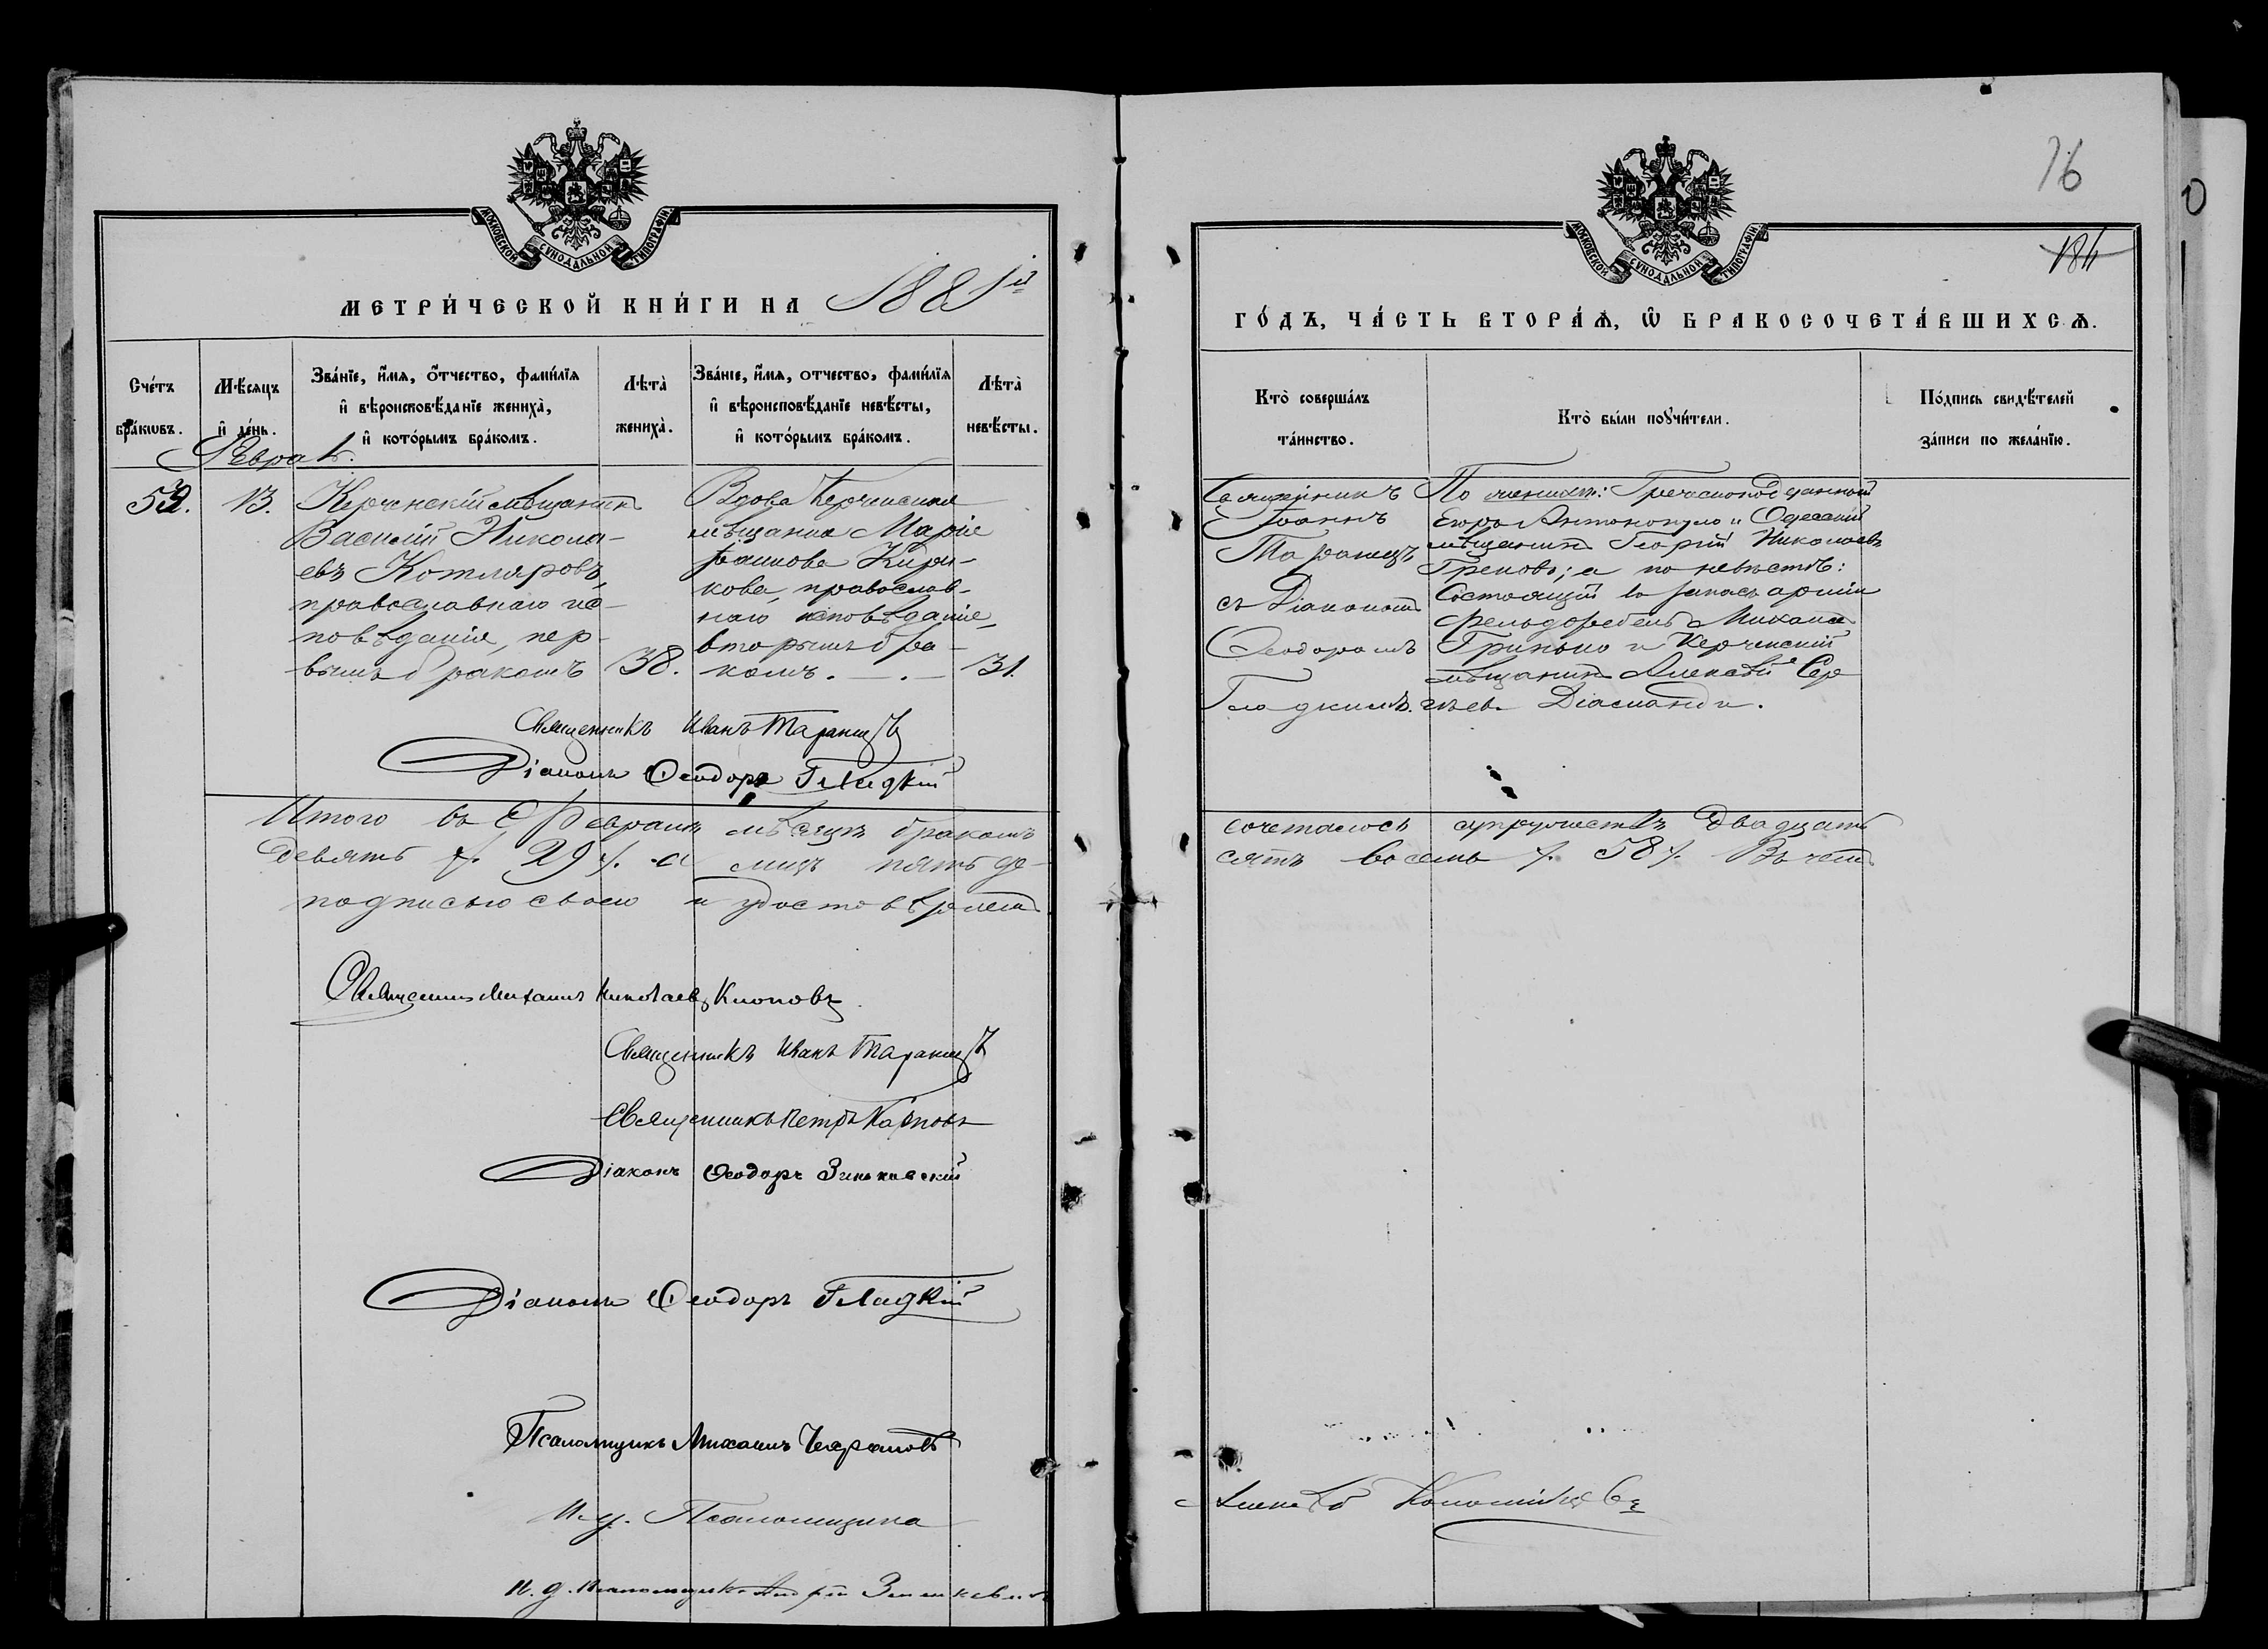 76
МОСКОВСКОЙ СѴНОДАЛЬНОЙ ТИПОГРАФІИ
МОСКОВСКОЙ СѴНОДАЛЬНОЙ ТИПОГРАФІИ
184
МЕТРИ́ЧЕСКОЙ КНИ́ГИ НА 1881й
ГО́ДЪ, ЧА́СТЬ ВТОРА́Ѧ, Ѡ БРАКОСОЧЕТА́ВШИХСѦ.
Сче́тъ бра́кѡвъ.
Мѣ́сяцъ и҆ де́нь.
Зва́нїе, и҆́мѧ, о҆́тчество, фами́лїѧ
и҆ вѣроисповѣ́данїе жениха̀,
и҆ кото́рымъ бра́комъ.
Лѣта̀ жениха̀.
Зва́нїе, и҆́мѧ, отчество, фами́лїѧ
и҆ вѣроисповѣ́данїе невѣ́сты,
и҆ кото́рымъ бра́комъ.
Лѣта̀ невѣ́сты.
Кто̀ соверша́лъ та́инство.
Кто̀ бы́ли порꙋчи́тели.
По́дпись свидѣ́телей за́писи по жела́нїю.
Февра
53. 13.
Керченскій мѣщанинъ
Василій Никола-
евъ Котляровъ,
православнаго ис-
повѣданія, пер-
вымъ бракомъ 38.
Вдова Керченская
мѣщанка Марія
кова, православ-
наго исповѣданія,
вторымъ бра-
комъ. 31.
Священникъ
Іоаннъ
Таранецъ
съ Діакономъ
Ѳеодоромъ
Гладкимъ.
По женихѣ: Грекоподданный
Егоръ Антонопуло и Одесскій
мѣщанинъ Георгій Николаевъ
Грековъ; а по невѣстѣ:
Состоящій въ запасѣ арміи
фельдфебель Михаилъ
Гринько и Керченскій
мѣщанинъ Алексѣй Сер
гѣев. Діаманди.
Священникъ Иванъ Таранецъ
Діаконъ Ѳеодоръ Гладкій
Итого въ Февралѣ мѣсяцѣ бракомъ сочеталось супружествъ двадцать
девять /. 29 /. а лицъ пятьде- сятъ восемь /. 58 /. Въ чемъ
подписью своею и удостовѣряемъ
Священникъ Михаилъ Николаевъ Клоповъ
Священникъ Иванъ Таранецъ
Священникъ Петръ Карповъ
Діаконъ Ѳеодоръ Зиньковскій
Діаконъ Ѳеодоръ Гладкій
Псаломщикъ Михаилъ
И. д. Псаломщика Алексѣй
И. д. Псаломщика Андрей